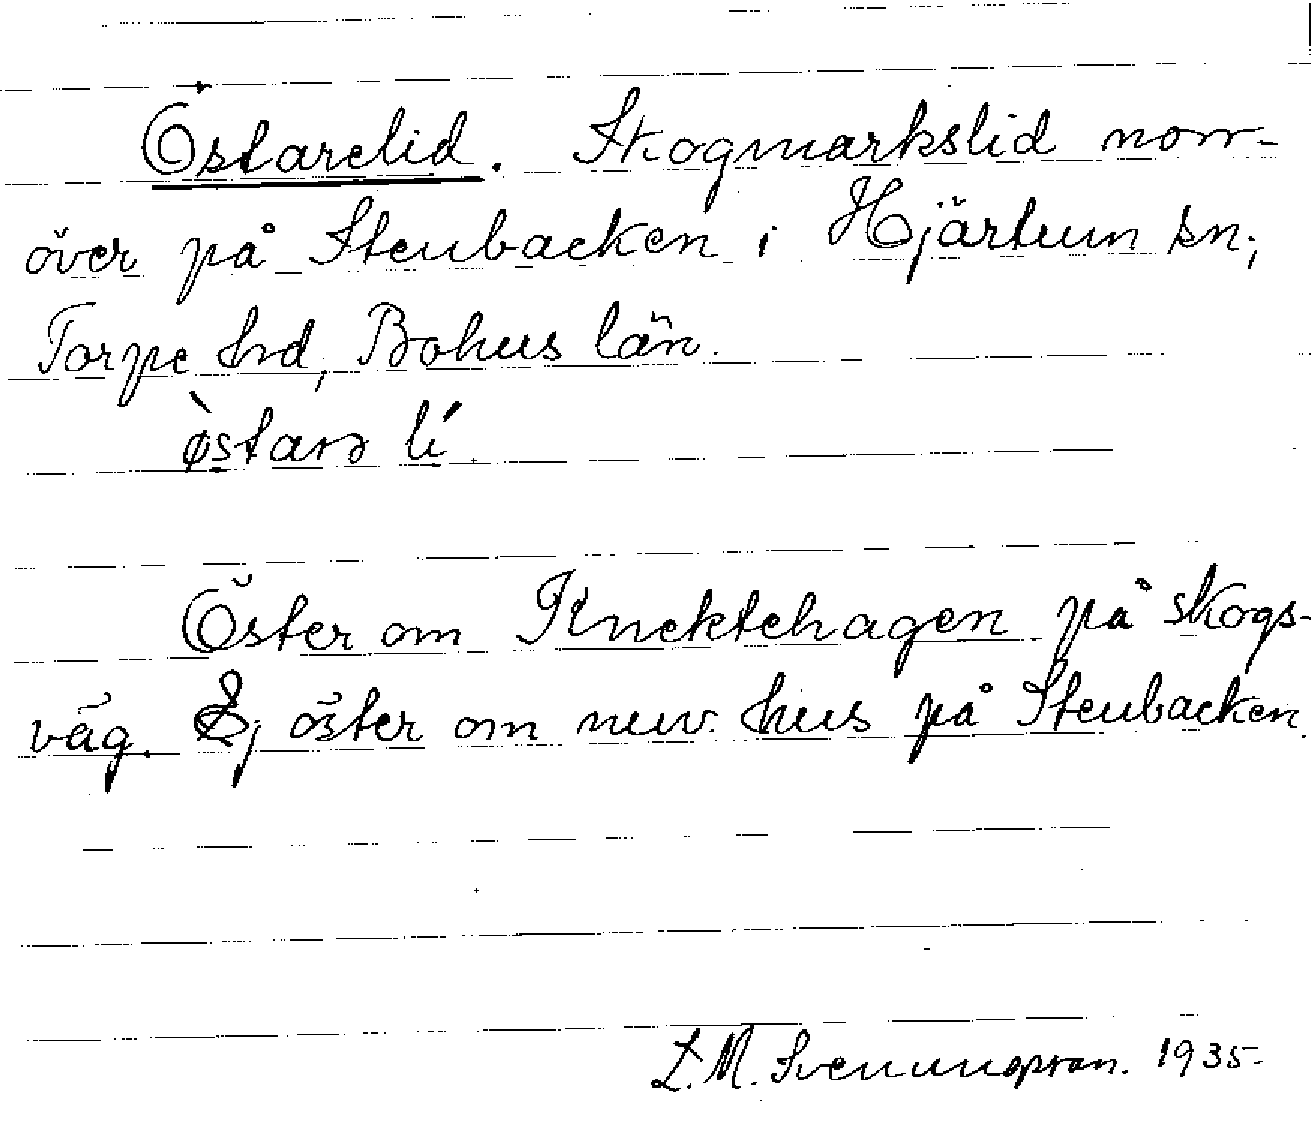 Östarelid. Skogmarkslid norr-
över på Stenbacken i Hjärtum sn;
Torpe hrd, Bohus län.
ø̀starə lí
Öster om Knektehagen på skogs-
väg. Ej öster om nuv. hus på Stenbacken.
L. M. Svenungsson. 1935.